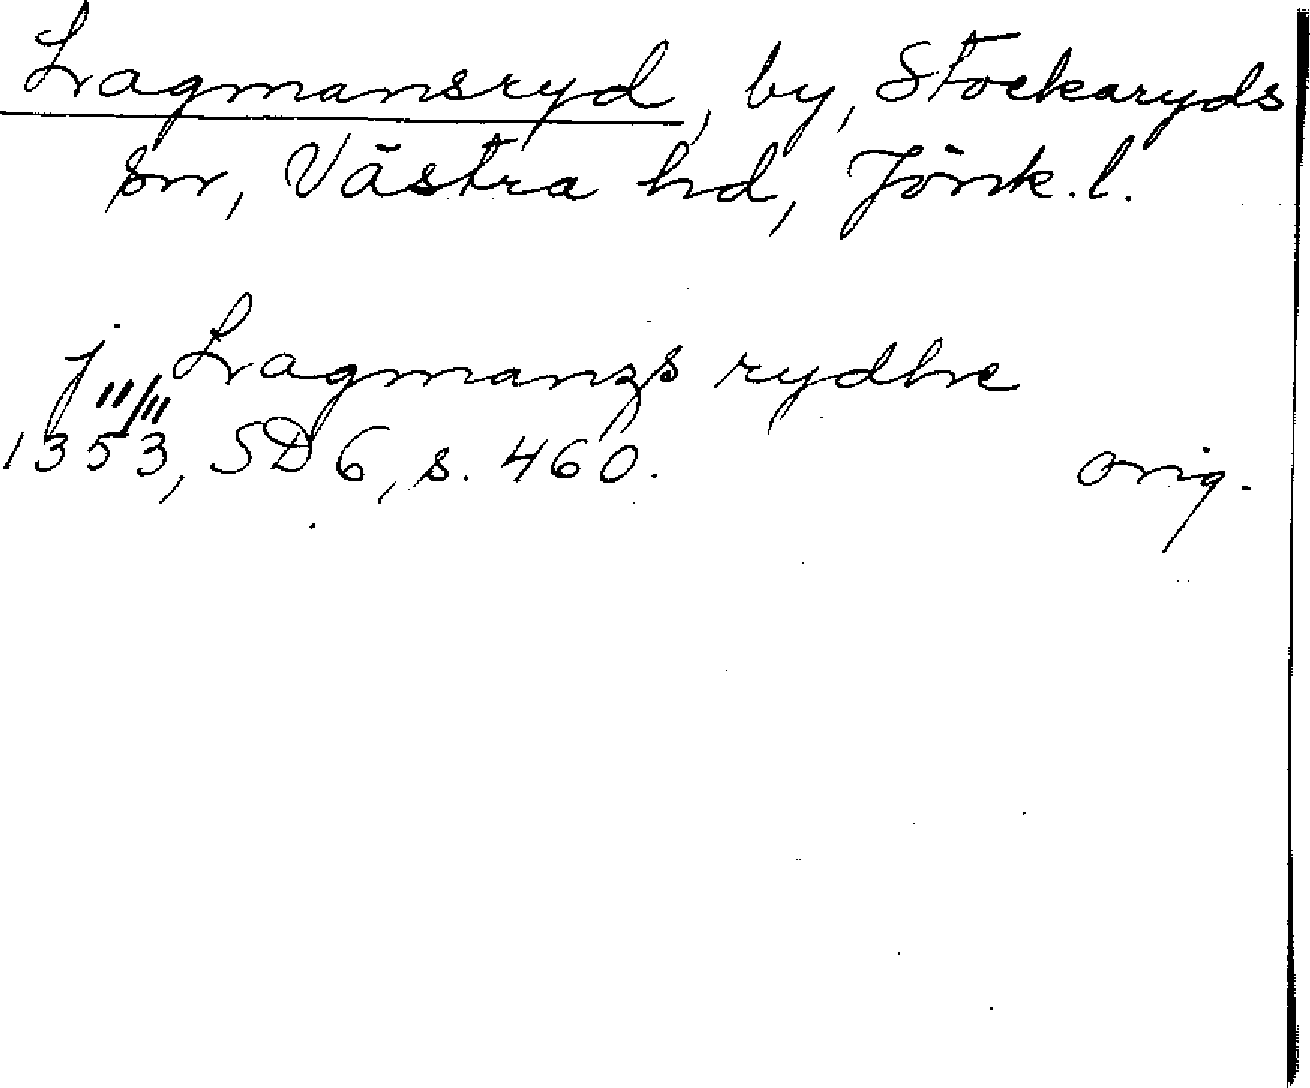 Lagmansryd, by, Stockaryds
sn, Västra hd, Jönk. l.
j "/" Lagmanzs rydhe
1353, SD 6, s. 460. orig.